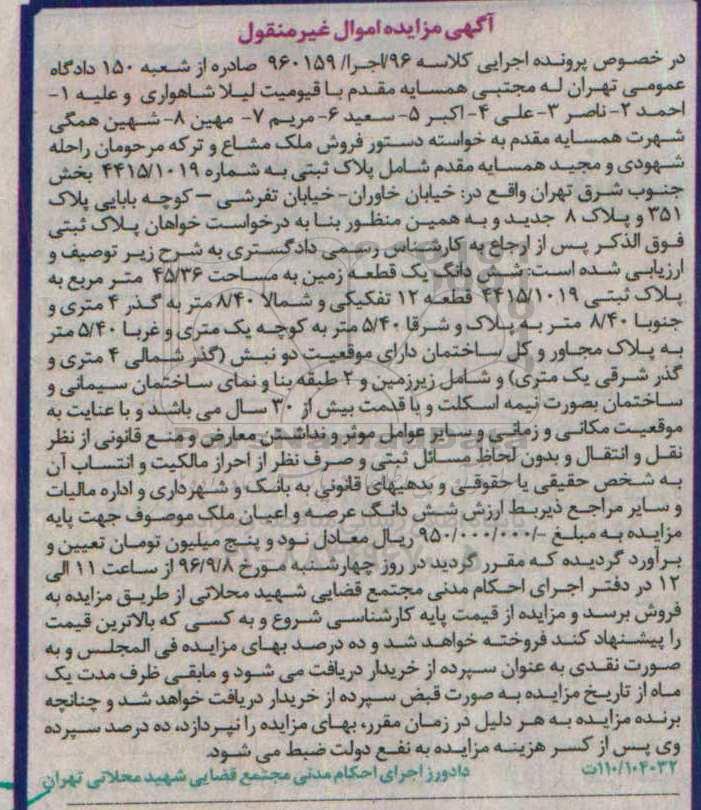 آگهی مزایده اموال غیرمنقول
در خصوص پرونده اجرایی کلاسه ۹۶/اجرا/ ۹۶۰۱۵۹ صادره از شعبه ۱۵۰ دادگاه
عمومی تهران له مجتبی همسایه مقدم با قیومیت لیلا شاهواری و علیه ۱-
احمد ۲- ناصر ۳- علی ۴- اکبر ۵- سعید ۶- مریم ۷- مهین ۸- شهین همگی
شهرت همسایه مقدم به خواسته دستور فروش ملک مشاع و ترکه مرحومان راحله
شهودی و مجید همسایه مقدم شامل پلاک ثبتی به شماره ۴۴۱۵/۱۰۱۹ بخش
جنوب شرق تهران واقع در: خیابان خاوران- خیابان تفرشی – کوچه بابایی پلاک
۳۵۱ و پلاک ۸ جدید و به همین منظور بنا به درخواست خواهان پلاک ثبتی
فوق الذکر پس از ارجاع به کارشناس رسمی دادگستری به شرح زیر توصیف و
ارزیابی شده است: شش دانگ یک قطعه زمین به مساحت ۴۵/۳۶ متر مربع به
پلاک ثبتی ۴۴۱۵/۱۰۱۹ قطعه ۱۲ تفکیکی و شمالا ۸/۴۰ متر به گذر ۴ متری و
جنوبا ۸/۴۰ متر به پلاک و شرقا ۵/۴۰ متر به کوچه یک متری و غربا ۵/۴۰ متر
به پلاک مجاور و کل ساختمان دارای موقعیت دو نبش (گذر شمالی ۴ متری و
گذر شرقی یک متری) و شامل زیرزمین و ۲ طبقه بنا و نمای ساختمان سیمانی و
ساختمان بصورت نیمه اسکلت و با قدمت بیش از ۳۰ سال می باشد و با عنایت به
موقعیت مکانی و زمانی و سایر عوامل موثر و نداشتن معارض و منع قانونی از نظر
نقل و انتقال و بدون لحاظ مسائل ثبتی و صرف نظر از احراز مالکیت و انتساب آن
به شخص حقیقی یا حقوقی و بدهیهای قانونی به بانک و شهرداری و اداره مالیات
و سایر مراجع ذیربط ارزش شش دانگ عرصه و اعیان ملک موصوف جهت پایه
مزایده به مبلغ -/۹۵۰/۰۰۰/۰۰۰ ریال معادل نود و پنج میلیون تومان تعیین و
برآورد گردیده که مقرر گردید در روز چهارشنبه مورخ ۹۶/۹/۸ از ساعت ۱۱ الی
۱۲ در دفتر اجرای احکام مدنی مجتمع قضایی شهید محلاتی از طریق مزایده به
فروش برسد و مزایده از قیمت پایه کارشناسی شروع و به کسی که بالاترین قیمت
را پیشنهاد کند فروخته خواهد شد و ده درصد بهای مزایده فی المجلس و به
صورت نقدی به عنوان سپرده از خریدار دریافت می شود و مابقی ظرف مدت یک
ماه از تاریخ مزایده به صورت قبض سپرده از خریدار دریافت خواهد شد و چنانچه
برنده مزایده به هر دلیل در زمان مقرر، بهای مزایده را نپردازد، ده درصد سپرده
وی پس از کسر هزینه مزایده به نفع دولت ضبط می شود.
۱۱۰/۱۰۴۰۳۲ت دادورز اجرای احکام مدنی مجتمع قضایی شهید محلاتی تهران